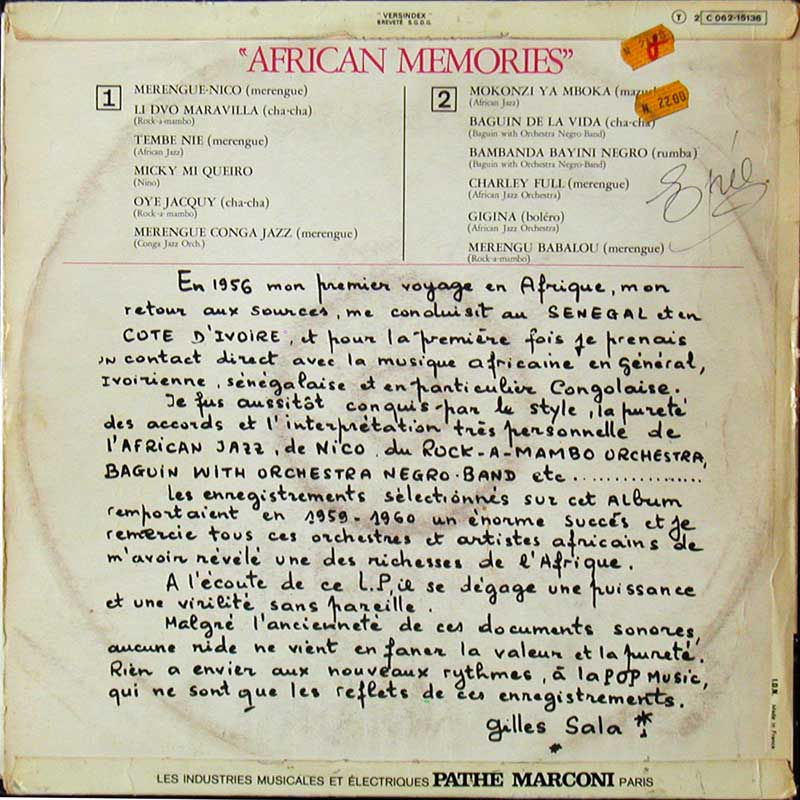 "VERSINDEX"
BREVETÉ S.G.D.G.
T 2 C 062-15136
"AFRICAN MEMORIES"
1
MERENGUE-NICO (merengue)
LI DVO MARAVILLA (cha-cha)
(Rock-a-mambo)
TEMBE NIE (merengue)
(African Jazz)
MICKY MI QUEIRO
(Nino)
OYE JACQUY (cha-cha)
(Rock-a mambo)
MERENGUE CONGA JAZZ (merengue)
(Conga Jazz Orch.)
2
MOKONZI YA MBOKA
(African Jazz)
BAGUIN DE LA VIDA (cha-cha)
(Baguin with Orchestra Negro-Band)
BAMBANDA BAYINI NEGRO (rumba)
(Baguin with Orchestra Negro-Band)
CHARLEY FULL (merengue)
(African Jazz Orchestra)
GIGINA (boléro)
(African Jazz Orchestra)
MERENGU BABALOU (merengue)
(Rock-a-mambo)
N. 2200
En 1956 mon premier voyage en Afrique, mon
retour aux sources, me conduisit au SENEGAL et en
COTE D'IVOIRE, et pour la première fois je prenais
un contact direct avec la musique africaine en général,
Ivoirienne, sénégalaise et en particulier Congolaise.
Je fus aussitôt conquis par le style, la pureté
des accords et l'interprétation très personnelle de
l'AFRICAN JAZZ, de NICO, du ROCK-A-MAMBO ORCHESTRA,
BAGUIN WITH ORCHESTRA NEGRO-BAND etc ................
Les enregistrements sélectionnés sur cet ALBUM
remportaient en 1959-1960 un énorme succés et je
remercie tous ces orchestres et artistes africains de
m'avoir révélé une des richesses de l'Afrique.
A l'écoute de ce L.P, il se dégage une puissance
et une virilité sans pareille.
Malgré l'ancienneté de ces documents sonores,
aucune ride ne vient en faner la valeur et la pureté.
Rien a envier aux nouveaux rythmes, à la POP MUSIC,
qui ne sont que les reflets de ces enregistrements.
Gilles Sala
I.D.N. Made in France
LES INDUSTRIES MUSICALES ET ÉLECTRIQUES PATHE MARCONI PARIS